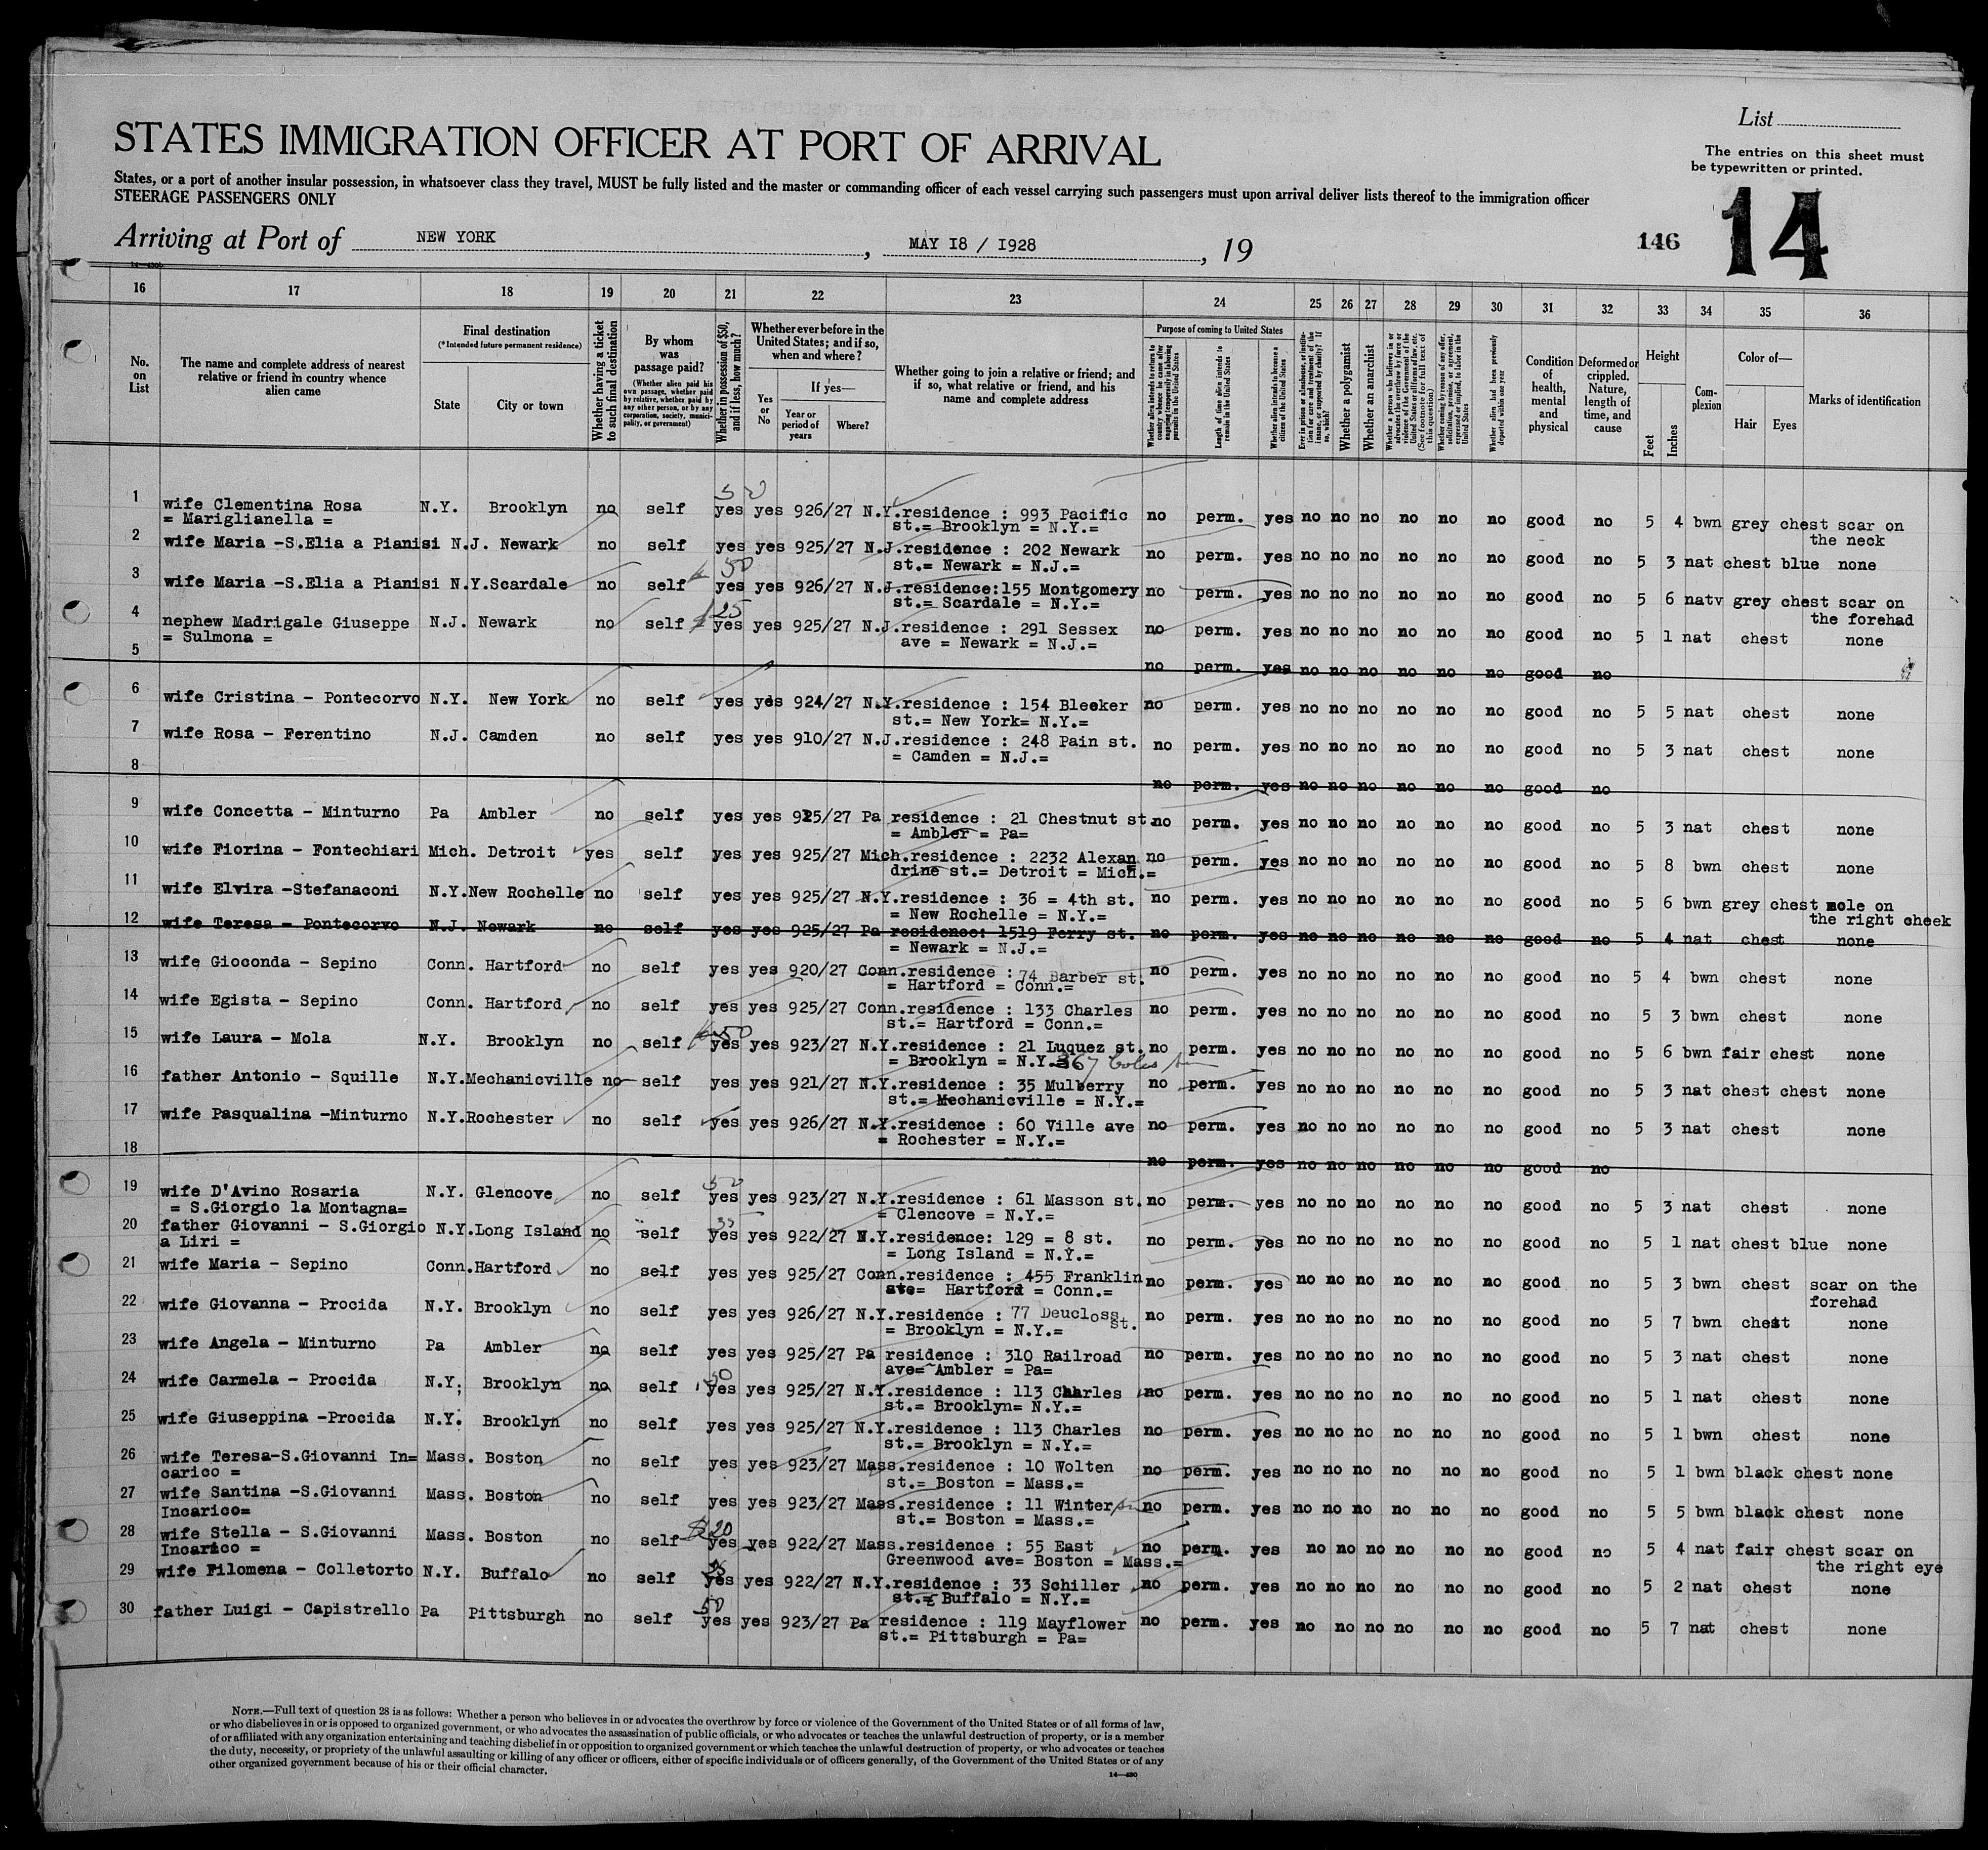 List
STATES IMMIGRATION OFFICER AT PORT OF ARRIVAL
The entries on this sheet must
be typewritten or printed.
States, or a port of another insular possession, in whatsoever class they travel, MUST be fully listed and the master or commanding officer of each vessel carrying such passengers must upon arrival deliver lists thereof to the immigration officer
STEERAGE PASSENGERS ONLY
14
Arriving at Port of NEW YORK , MAY I8 / I928 , 19
146
16 17 18 19 20 21 22 23 24 25 26 27 28 29 30 31 32 33 34 35 36
No. on List
The name and complete address of nearest relative or friend in country whence alien came
Final destination
(*Intended future permanent residence)
State
City or town
Whether having a ticket to such final destination
By whom was passage paid?
(Whether alien paid his own passage, whether paid by relative, whether paid by any other person, or by any corporation, society, municipality, or government)
Whether in possession of $50, and if less, how much?
Whether ever before in the United States; and if so, when and where?
Yes or No
If yes—
Year or period of years
Where?
Whether going to join a relative or friend; and if so, what relative or friend, and his name and complete address
Purpose of coming to United States
Length of time alien intends to remain in the United States
Whether alien intends to become a citizen of the United States
Whether a polygamist
Whether an anarchist
Condition of health, mental and physical
Deformed or crippled. Nature, length of time, and cause
Height
Feet
Inches
Complexion
Color of—
Hair
Eyes
Marks of identification
1 wife Clementina Rosa N.Y. Brooklyn no self 50 yes yes 926/27 N.Y. residence : 993 Pacific no perm. yes no no no no no no good no 5 4 bwn grey chest scar on
= Mariglianella = st.= Brooklyn = N.Y.= the neck
2 wife Maria -S.Elia a Pianisi N.J. Newark no self yes yes 925/27 N.J. residence : 202 Newark no perm. yes no no no no no no good no 5 3 nat chest blue none
st.= Newark = N.J.=
3 wife Maria -S.Elia a Pianisi N.Y. Scardale no self 50 yes yes 926/27 N.J. residence:155 Montgomery no perm. yes no no no no no no good no 5 6 natv grey chest scar on
st.= Scardale = N.Y.= the forehad
4 nephew Madrigale Giuseppe N.J. Newark no self 25 yes yes 925/27 N.J. residence : 291 Sessex no perm. yes no no no no no no good no 5 1 nat chest none
= Sulmona = ave = Newark = N.J.=
5 no perm. yes no no no no no no good no
6 wife Cristina - Pontecorvo N.Y. New York no self yes yes 924/27 N.Y. residence : 154 Bleeker no perm. yes no no no no no no good no 5 5 nat chest none
st.= New York= N.Y.=
7 wife Rosa - Ferentino N.J. Camden no self yes yes 910/27 N.J. residence : 248 Pain st. no perm. yes no no no no no no good no 5 3 nat chest none
= Camden = N.J.=
8 no perm. yes no no no no no no good no
9 wife Concetta - Minturno Pa Ambler no self yes yes 925/27 Pa residence : 21 Chestnut st. no perm. yes no no no no no no good no 5 3 nat chest none
= Ambler = Pa=
10 wife Fiorina - Fontechiari Mich. Detroit yes self yes yes 925/27 Mich. residence : 2232 Alexan no perm. yes no no no no no no good no 5 8 bwn chest none
drine st.= Detroit = Mich.=
11 wife Elvira -Stefanaconi N.Y. New Rochelle no self yes yes 925/27 N.Y. residence : 36 = 4th st. no perm. yes no no no no no no good no 5 6 bwn grey chest mole on
= New Rochelle = N.Y.= the right cheek
12 wife Teresa - Pontecorvo N.J. Newark no self yes yes 925/27 Pa residence: 1519 Ferry st. no perm. yes no no no no no no good no 5 4 nat chest none
= Newark = N.J.=
13 wife Gioconda - Sepino Conn. Hartford no self yes yes 920/27 Conn. residence : 74 Barber st. no perm. yes no no no no no no good no 5 4 bwn chest none
= Hartford = Conn.=
14 wife Egista - Sepino Conn. Hartford no self yes yes 925/27 Conn. residence : 133 Charles no perm. yes no no no no no no good no 5 3 bwn chest none
st.= Hartford = Conn.=
15 wife Laura - Mola N.Y. Brooklyn no self 50 yes yes 923/27 N.Y. residence : 21 Luquez st. no perm. yes no no no no no no good no 5 6 bwn fair chest none
= Brooklyn = N.Y. 367
16 father Antonio - Squille N.Y. Mechanicville no self yes yes 921/27 N.Y. residence : 35 Mulberry no perm. yes no no no no no no good no 5 3 nat chest chest none
st.= Mechanicville = N.Y.=
17 wife Pasqualina -Minturno N.Y. Rochester no self yes yes 926/27 N.Y. residence : 60 Ville ave no perm. yes no no no no no no good no 5 3 nat chest none
= Rochester = N.Y.=
18 no perm. yes no no no no no no good no
19 wife D'Avino Rosaria N.Y. Glencove no self 50 yes yes 923/27 N.Y. residence : 61 Masson st. no perm. yes no no no no no no good no 5 3 nat chest none
= S.Giorgio la Montagna= = Clencove = N.Y.=
20 father Giovanni - S.Giorgio N.Y. Long Island no self 35 yes yes 922/27 N.Y. residence: 129 = 8 st. no perm. yes no no no no no no good no 5 1 nat chest blue none
a Liri = = Long Island = N.Y.=
21 wife Maria - Sepino Conn. Hartford no self yes yes 925/27 Conn. residence : 455 Franklin no perm. yes no no no no no no good no 5 3 bwn chest scar on the
ave= Hartford = Conn.= forehad
22 wife Giovanna - Procida N.Y. Brooklyn no self yes yes 926/27 N.Y. residence : 77 Deucloss st. no perm. yes no no no no no no good no 5 7 bwn chest none
= Brooklyn = N.Y.=
23 wife Angela - Minturno Pa Ambler no self yes yes 925/27 Pa residence : 310 Railroad no perm. yes no no no no no no good no 5 3 nat chest none
ave= Ambler = Pa=
24 wife Carmela - Procida N.Y; Brooklyn no self 50 yes yes 925/27 N.Y. residence : 113 Charles no perm. yes no no no no no no good no 5 1 nat chest none
st.= Brooklyn= N.Y.=
25 wife Giuseppina -Procida N.Y. Brooklyn no self yes yes 925/27 N.Y. residence : 113 Charles no perm. yes no no no no no no good no 5 1 bwn chest none
st.= Brooklyn = N.Y.=
26 wife Teresa-S.Giovanni In= Mass. Boston no self yes yes 923/27 Mass. residence : 10 Wolten no perm. yes no no no no no no good no 5 1 bwn black chest none
carico = st.= Boston = Mass.=
27 wife Santina -S.Giovanni Mass. Boston no self yes yes 923/27 Mass. residence : 11 Winter no perm. yes no no no no no no good no 5 5 bwn black chest none
Incarico= st.= Boston = Mass.=
28 wife Stella - S.Giovanni Mass. Boston no self $20 yes yes 922/27 Mass. residence : 55 East no perm. yes no no no no no no good no 5 4 nat fair chest scar on
Incarico = Greenwood ave= Boston = Mass.= the right eye
29 wife Filomena - Colletorto N.Y. Buffalo no self 25 yes yes 922/27 N.Y. residence : 33 Schiller no perm. yes no no no no no no good no 5 2 nat chest none
st.= Buffalo = N.Y.=
30 father Luigi - Capistrello Pa Pittsburgh no self 50 yes yes 923/27 Pa residence : 119 Mayflower no perm. yes no no no no no no good no 5 7 nat chest none
st.= Pittsburgh = Pa=
NOTE.—Full text of question 28 is as follows: Whether a person who believes in or advocates the overthrow by force or violence of the Government of the United States or of all forms of law,
or who disbelieves in or is opposed to organized government, or who advocates the assassination of public officials, or who advocates or teaches the unlawful destruction of property, or is a member
of or affiliated with any organization entertaining and teaching disbelief in or opposition to organized government or which teaches the unlawful destruction of property, or who advocates or teaches
the duty, necessity, or propriety of the unlawful assaulting or killing of any officer or officers, either of specific individuals or of officers generally, of the Government of the United States or of any
other organized government because of his or their official character.
14—430